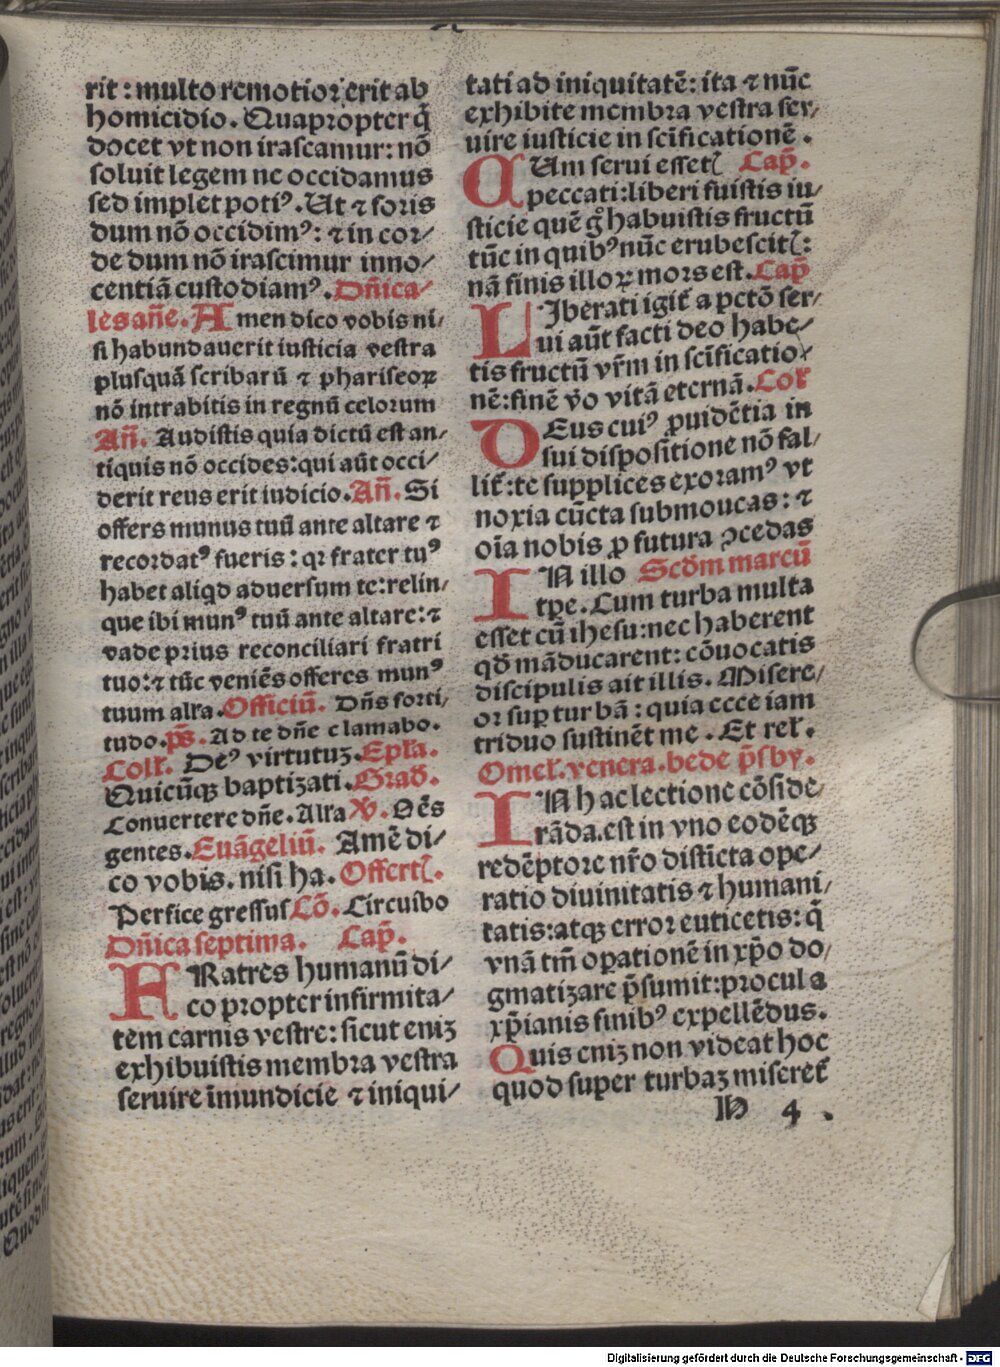 rit : multo remotior erit ab
homicidio. Quapropter q̄
docet vt non irascamur: nō
soluit legem ne occidamus
sed implet potiꝰ. Ut ⁊ foris
dum nō occidimꝰ: ⁊ in cor/
de dum nō irascimur inno/
centiā custodiamꝰ. Dñica/
les añe. Amen dico vobis ni/
si habundauerit iusticia vestra
plusquā scribarū ⁊ phariseoꝝ
nō intrabitis in regnū celorum
Añ. Audistis quia dictū est an/
tiquis nō occides: qui aūt occi/
derit reus erit iudicio. Añ. Si
offers munus tuū ante altare ⁊
recordatꝰ fueris : qꝛ frater tuꝰ
habet aliqd aduersum te: relin/
que ibi munꝰ tuū ante altare: ⁊
vade prius reconciliari fratri
tuo: ⁊ tūc veniēs offeres munꝰ
tuum alľa. Officiū. Dñs forti/
tudo. pš. Ad te dñe clamabo.
Colľ. Deꝰ virtutuꝫ. Epľa.
Quicūqꝫ baptizati. Grad̄.
Conuertere dñe. Alľa ℣. Oēs
gentes. Euāgeliū. Amē di/
co vobis. nisi ha. Offertꝭ.
Perfice gressus Cō. Circuibo
Dñica septima. Cap̄.
FRatres humanū di/
co propter infirmita/
tem carnis vestre: sicut eniꝫ
exhibuistis membra vestra
seruire īmundicie ⁊ iniqui/
tati ad iniquitatē: ita ⁊ nūc
exhibite membra vestra ser/
uire iusticie in scīficationē .
CUm serui essetꝭ Cap̄.
peccati: liberi fuistis iu/
sticie quē gͦ habuistis fructū
tūc in quibꝰ nūc erubescitꝭ:
nā finis illoꝝ mors est. Cap̄
LIberati igiť a pctō ser/
ui aūt facti deo habe/
tis fructū vr̄m in scīficatio/
nē: finē v̄o vitā eternā. Colľ
DEus cuiꝰ ꝓuidētia in
sui dispositione nō fal/
liť: te supplices exoramꝰ vt
noxia cūcta submoueas: ⁊
oīa nobis ꝓ futura ꝯcedas
IN illo Scdm marcū
tꝑe. Cum turba multa
esset cū ihesu: nec haberent
qd̄ māducarent: cōuocatis
discipulis ait illis. Misere/
or suꝑ turbā : quia ecce iam
triduo sustinēt me . Et reľ.
Omeľ. venera. bede p̄sby.
IN hac lectione cōside/
rāda. est in vno eodēqꝫ
redēptore nr̄o disticta ope/
ratio diuinitatis ⁊ humani/
tatis: atqꝫ error euticetis: q̄
vnā tm̄ oꝑationē in xp̄o do/
gmatizare p̄sumit: procul a
xp̄ianis finibꝰ expellēdus.
Quis eniꝫ non videat hoc
quod super turbaꝫ misereť
H 4 .
Digitalisierung gefördert durch die Deutsche Forschungsgemeinschaft - DFG